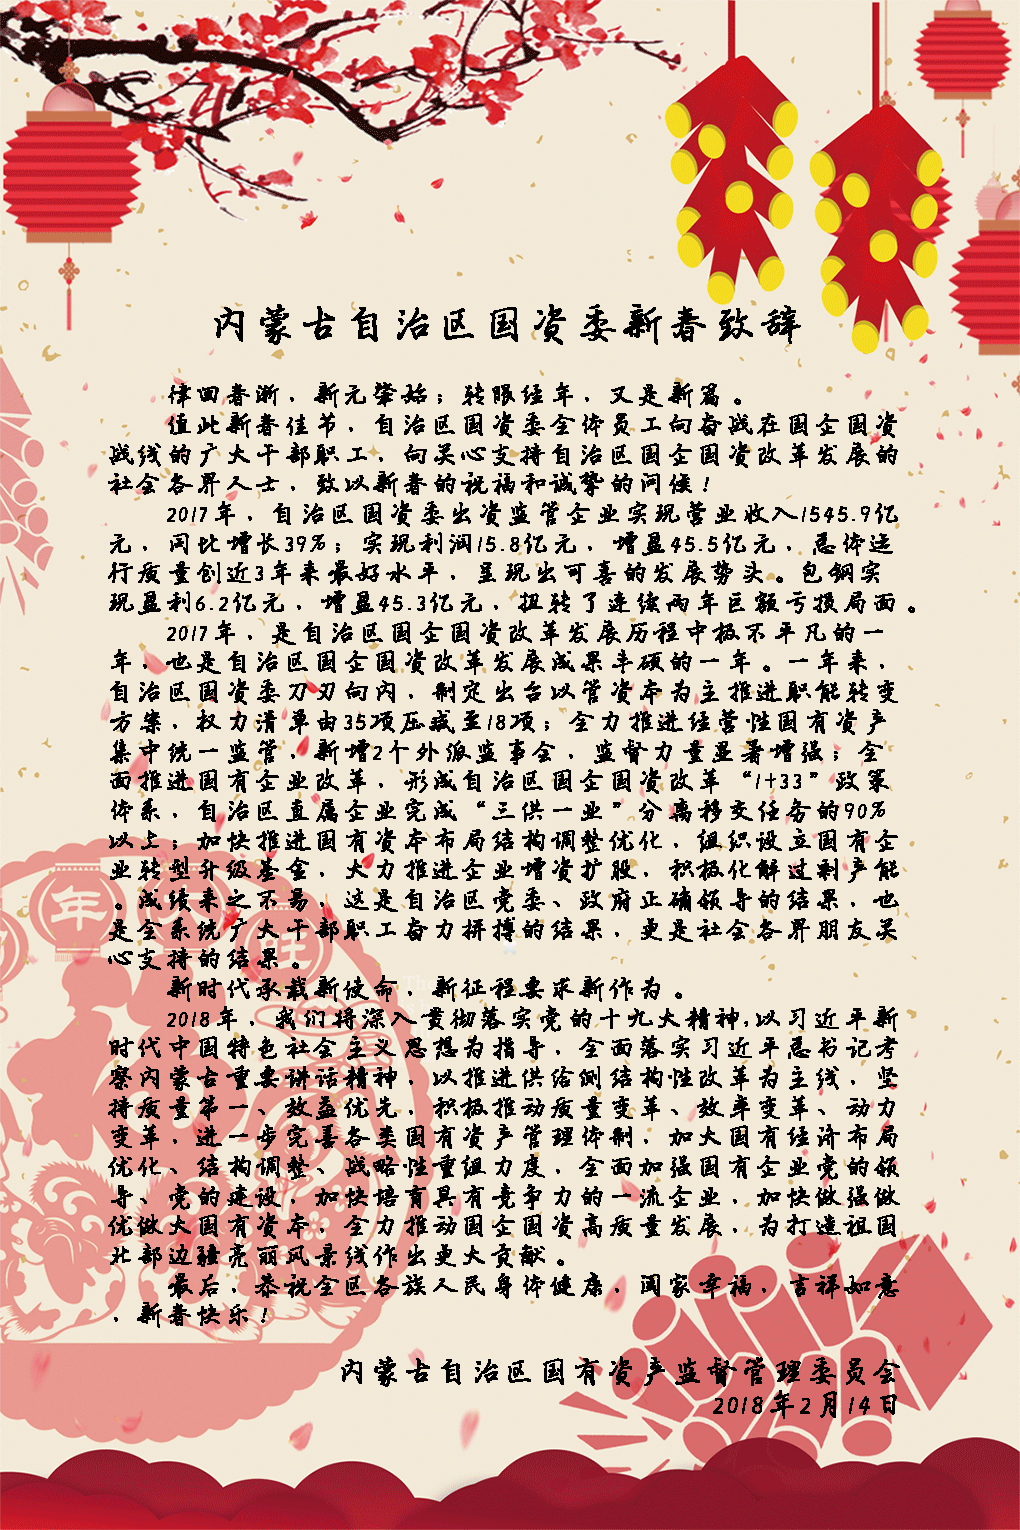 内蒙古自治区国资委新春致辞
律回春渐，新元肇始；转眼经年，又是新篇。
值此新春佳节，自治区国资委全体员工向奋战在国企国资
战线的广大干部职工，向关心支持自治区国企国资改革发展的
社会各界人士，致以新春的祝福和诚挚的问候！
2017年，自治区国资委出资监管企业实现营业收入1545.9亿
元，同比增长39%；实现利润15.8亿元，增盈45.5亿元，总体运
行质量创近3年来最好水平，呈现出可喜的发展势头。包钢实
现盈利6.2亿元，增盈45.3亿元，扭转了连续两年巨额亏损局面。
2017年，是自治区国企国资改革发展历程中极不平凡的一
年，也是自治区国企国资改革发展成果丰硕的一年。一年来，
自治区国资委刀刃向内，制定出台以管资本为主推进职能转变
方案，权力清单由35项压减至18项；全力推进经营性国有资产
集中统一监管，新增2个外派监事会，监督力量显著增强；全
面推进国有企业改革，形成自治区国企国资改革“1+33”政策
体系，自治区直属企业完成“三供一业”分离移交任务的90%
以上；加快推进国有资本布局结构调整优化，组织设立国有企
业转型升级基金，大力推进企业增资扩股，积极化解过剩产能
。成绩来之不易，这是自治区党委、政府正确领导的结果，也
是全系统广大干部职工奋力拼搏的结果，更是社会各界朋友关
心支持的结果。
新时代承载新使命，新征程要求新作为。
2018年，我们将深入贯彻落实党的十九大精神,以习近平新
时代中国特色社会主义思想为指导，全面落实习近平总书记考
察内蒙古重要讲话精神，以推进供给侧结构性改革为主线，坚
持质量第一、效益优先，积极推动质量变革、效率变革、动力
变革，进一步完善各类国有资产管理体制，加大国有经济布局
优化、结构调整、战略性重组力度，全面加强国有企业党的领
导、党的建设，加快培育具有竞争力的一流企业，加快做强做
优做大国有资本，全力推动国企国资高质量发展，为打造祖国
北部边疆亮丽风景线作出更大贡献。
最后，恭祝全区各族人民身体健康，阖家幸福，吉祥如意
，新春快乐！
内蒙古自治区国有资产监督管理委员会
2018年2月14日
年
旺